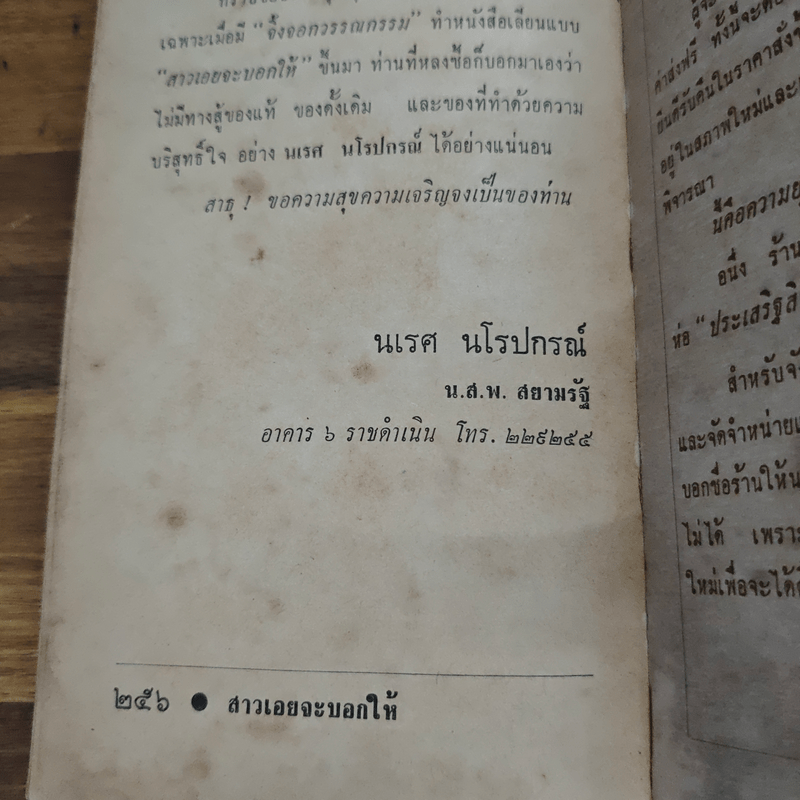 เฉพาะเมื่อมี "จิ้งจอกวรรณกรรม" ทำหนังสือเลียนแบบ
"สาวเอยจะบอกให้" ขึ้นมา ท่านที่หลงซื้อก็บอกมาเองว่า
ไม่มีทางสู้ของแท้ ของดั้งเดิม และของที่ทำด้วยความ
บริสุทธิ์ใจ อย่าง นเรศ นโรปกรณ์ ได้อย่างแน่นอน
สาธุ ! ขอความสุขความเจริญจงเป็นของท่าน
นเรศ นโรปกรณ์
น.ส.พ. สยามรัฐ
อาคาร ๖ ราชดำเนิน โทร. ๒๒๙๒๕๕
๒๕๖ ● สาวเอยจะบอกให้
ค่าส่งฟรี ทั้งนี้จะต้อง
ยินดีรับคืนในราคาสั่งซื้อ
อยู่ในสภาพใหม่และ
พิจารณา
นี่คือความ
อนึ่ง ร้าน
ห่อ "ประเสริฐ
สำหรับ
และจัดจำหน่าย
บอกชื่อร้านให้
ไม่ได้ เพราะ
ใหม่เพื่อจะได้